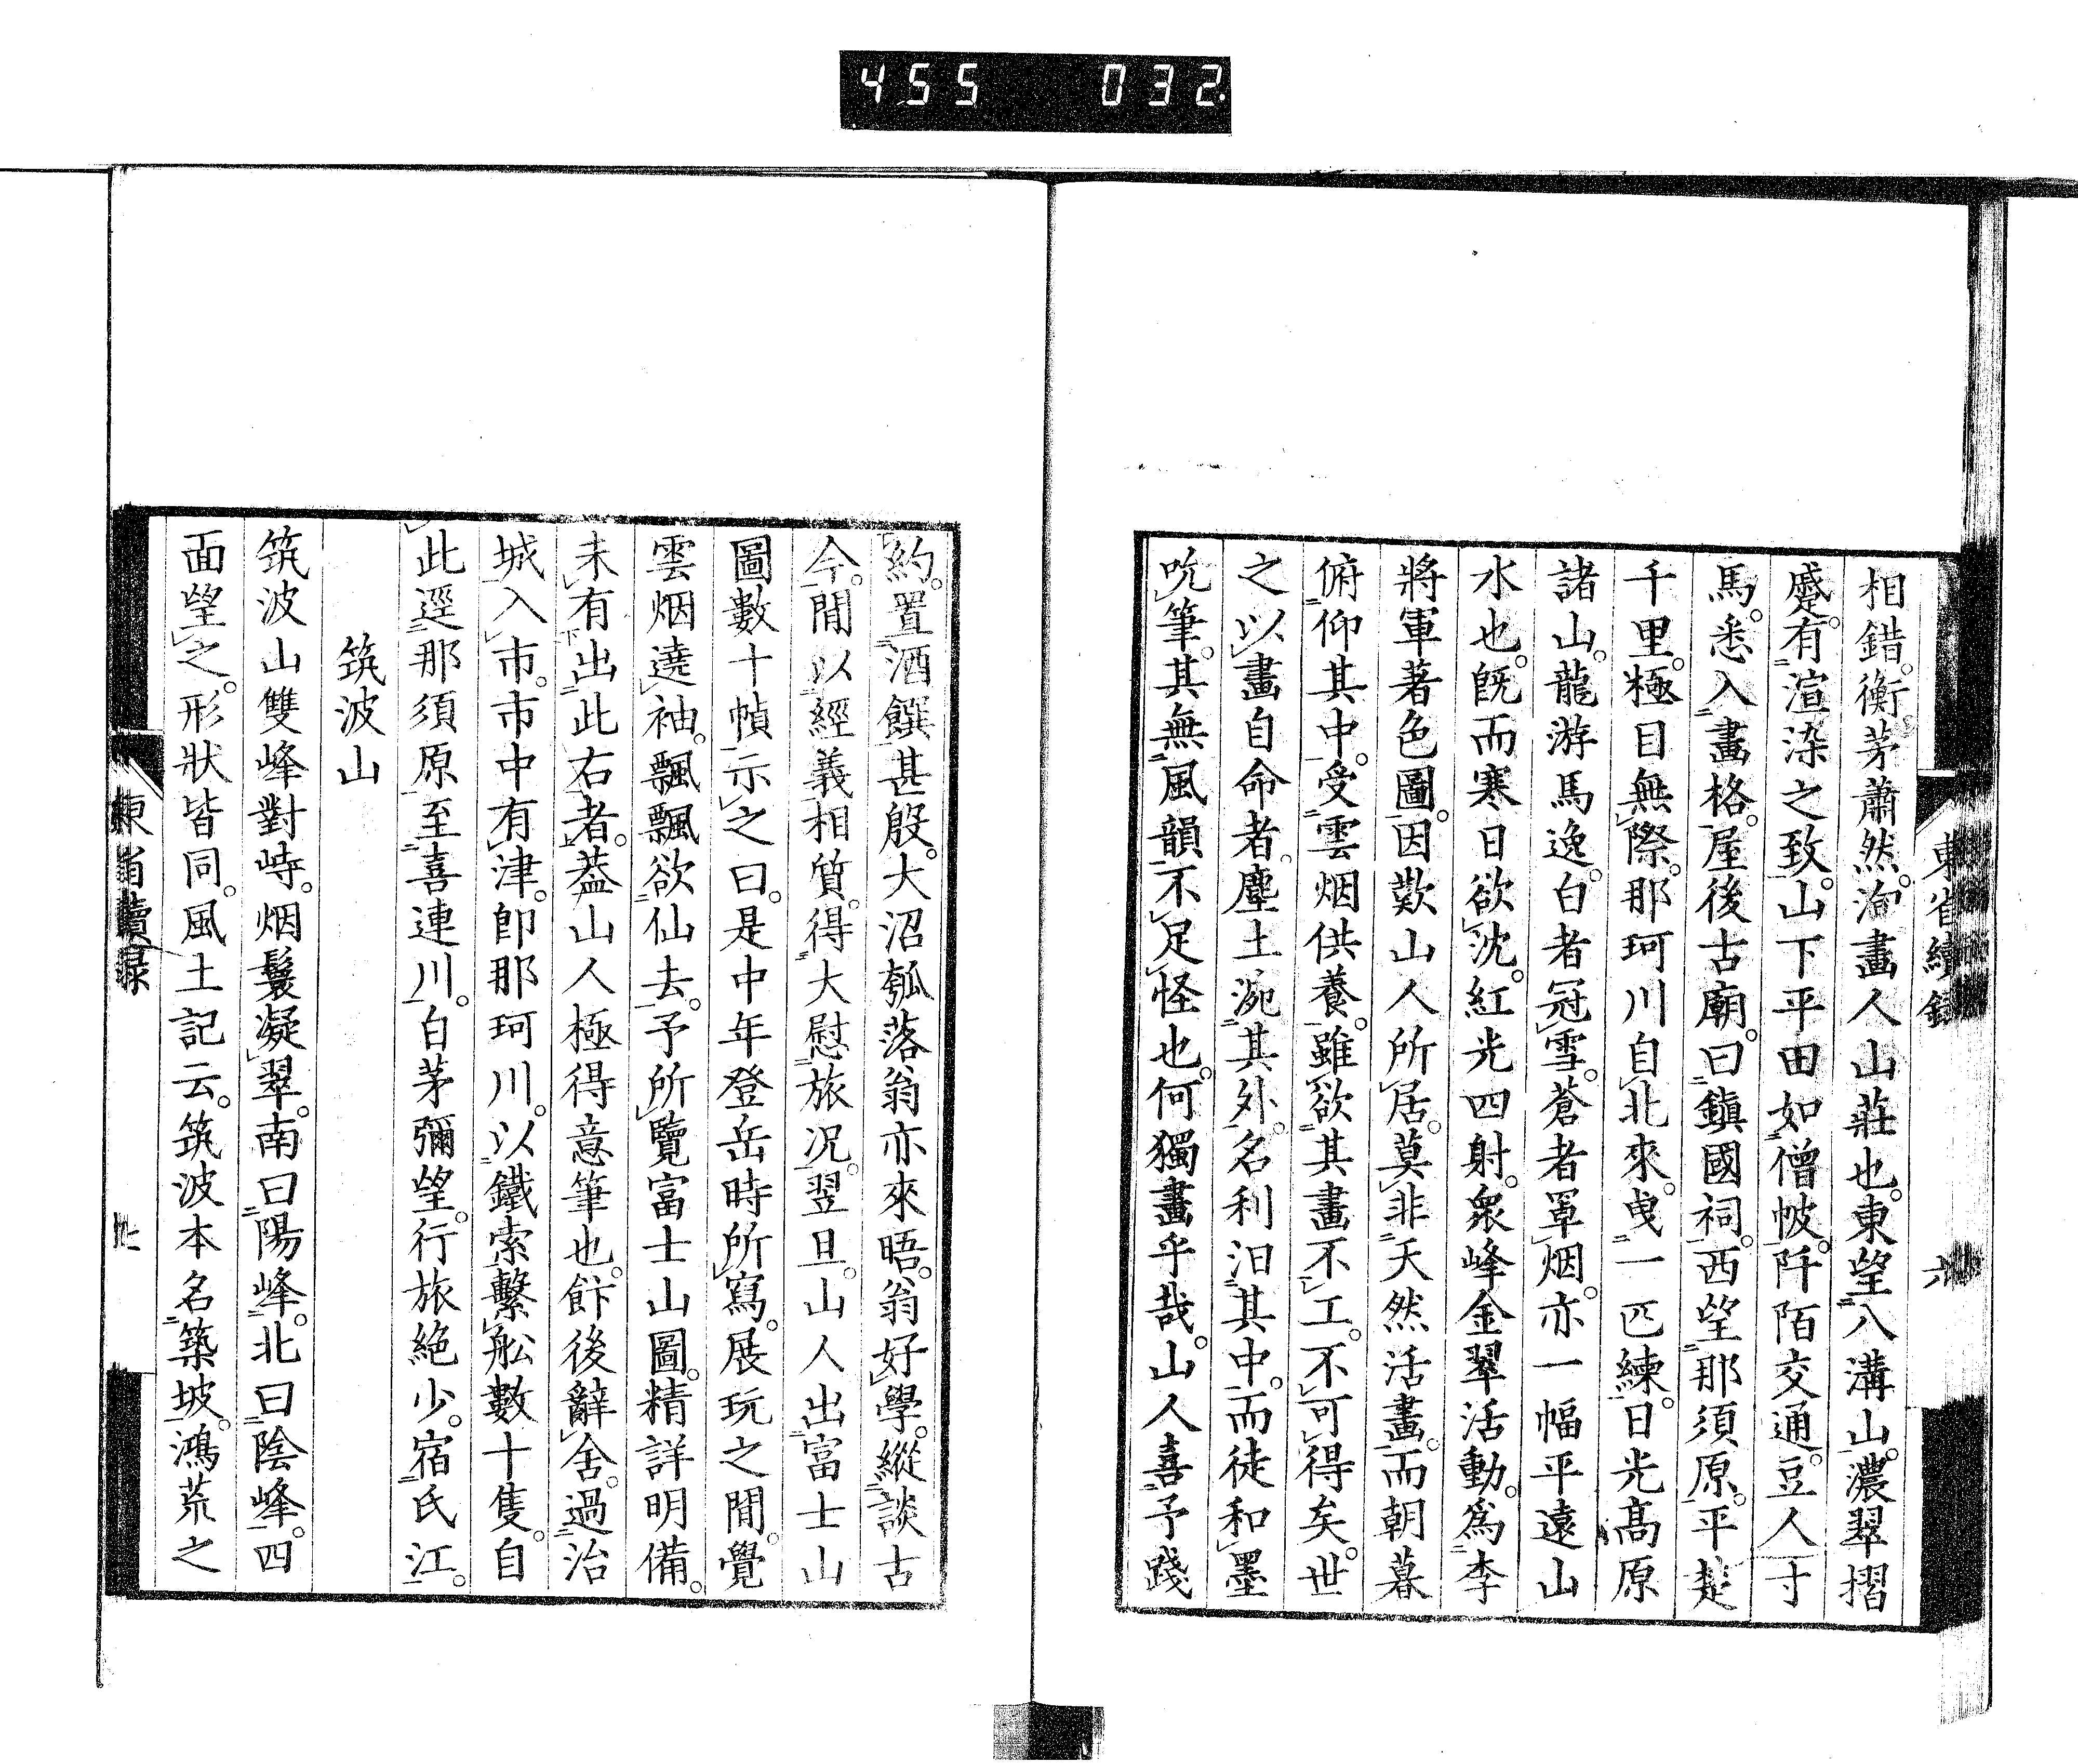 455 032
東省續錄
六
相錯。衡茅蕭然。淘畫人山莊也。東望八溝山。濃翠摺
蹙。有渲染之致。山下平田如僧帔。阡陌交通。豆人寸
馬。悉入畫格。屋後古廟。曰鎮國祠。西望那須原。平楚
千里。極目無際。那珂川自北來。曳一匹練。日光高原
諸山。龍游馬逸。白者冠雪。蒼者罩烟。亦一幅平遠山
水也。既而寒日欲沈。紅光四射。衆峰金翠活動。爲李
將軍著色圖。因歎山人所居。莫非天然活畫。而朝暮
俯仰其中。受雲烟供養。雖欲其畫不工。不可得矣。世
之以畫自命者。塵土涴其外。名利汨其中。而徒和墨
吮筆。其無風韻不足怪也。何獨畫乎哉。山人喜予踐
約。置酒饌甚殷。大沼瓠落翁亦來晤。翁好學。縱談古
今。間以經義相質。得大慰旅況。翌旦。山人出富士山
圖數十幀示之曰。是中年登岳時所寫。展玩之間。覺
雲烟遶袖。飄飄欲仙去。予所覽富士山圖。精詳明備。
未有出此右者。蓋山人極得意筆也。飰後辭舍。過治
城入市。市中有津。卽那珂川。以鐵索繫舩數十隻。自
此逕那須原至喜連川。白茅彌望。行旅絶少。宿氏江。
筑波山
筑波山雙峰對峙。烟鬟凝翠。南曰陽峰。北曰陰峰。四
面望之。形狀皆同。風土記云。筑波本名築坡。鴻荒之
東省續錄